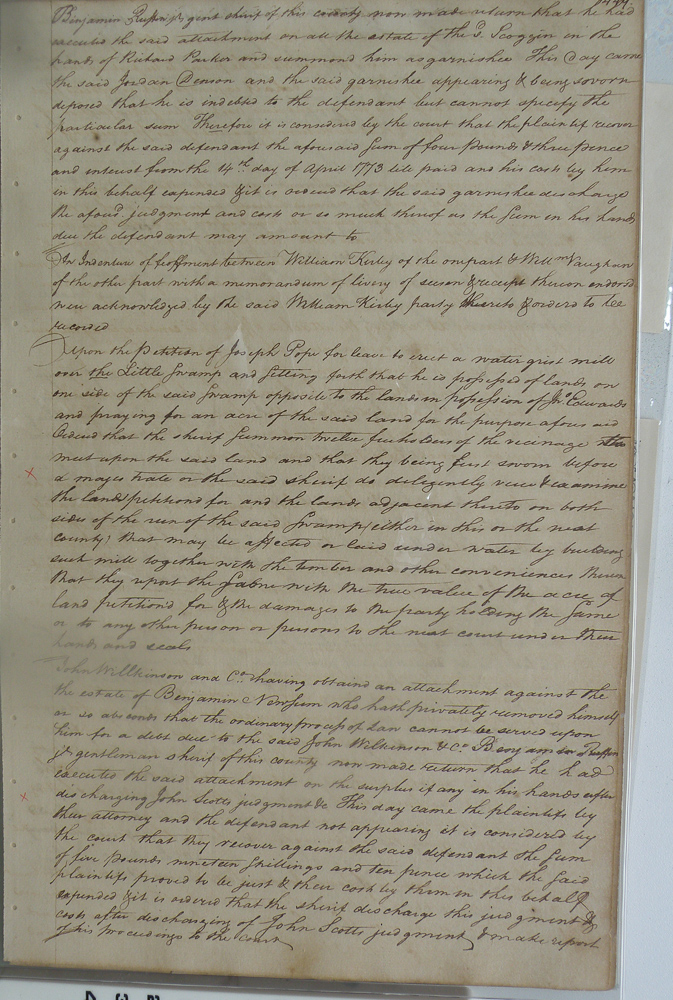 Benjamin Ruffin jr gent sherif of this county now made return that he had
executed the said attachment on all the estate of the sd. Scoggin in the
hands of Richard Parker and summond him as garnishee This Day came
the said Jordan Denson and the said garnishee appearing & being sworn
deposed that he is indebted to the defendant but cannot specify the
particular sum Therefore it is considered by the court that the plaintif recover
against the said defendant the aforesaid Sum of four Pounds & three pence
and interest from the 14th day of April 1773 till paid and his costs by him
in this behalf expended & it is ordered that the said garnishee discharge
the aforsd. judgment and costs or so much thereof as the Sum in his hands
due the defendant may amount to
An Indenture of feoffment between William Kirby of the one part & Willm Vaughan
of the other part with a memorandum of livery of seisen & receipt thereon endorsd
were acknowledged by the said William Kirby party thereto & orderd to be
recorded
Upon the Petition of Joseph Pope for leave to erect a water grist mill
over the Little Swamp and Setting forth that he is possessd of lands on
one side of the said Swamp opposite to the lands in possession of Jno. Edwards
and praying for an acre of the said land for the purpose afores aid
Ordered that the sherif Summon twelve freeholders of the vecinage to
meet upon the said land and that they being first sworn before
a majestrate or the said sherif do diligently view & examine
the land petitiond for and the lands adjacent thereto on both
sides of the run of the said Swamp (either in this or the next
county) that may be affected or laid under water by building
such mill together with the timber and other conveniences thereon
that they report the Same with the true value of the acre of
land petition'd for & the damages to the party holding the Same
or to any other person or persons to the next court under their
hands and seals
John Willkinson and Co. having obtaind an attachment against the
the estate of Benjamin Newsum who hath privately removed himself
or so absconds that the ordinary process of Law cannot be served upon
him for a debt due to the said John Wilkinson & Co. Benjamin Ruffin
jr gentleman sherif of this county now made return that he had
executed the said attachment on the surplus if any in his hands after
discharging John Scotts judgment &c This day came the plaintifs by
their attorney and the defendant not appearing it is considered by
the court that they recover against the said defendant the Sum
of five Pounds nineteen Shillings and ten pence which the said
plaintifs proved to be just & their costs by them in this behalf
expended & it is ordered that the sherif discharge this judgment &
costs after discharging of John Scotts judgment & make report
of his proceedings to the Court